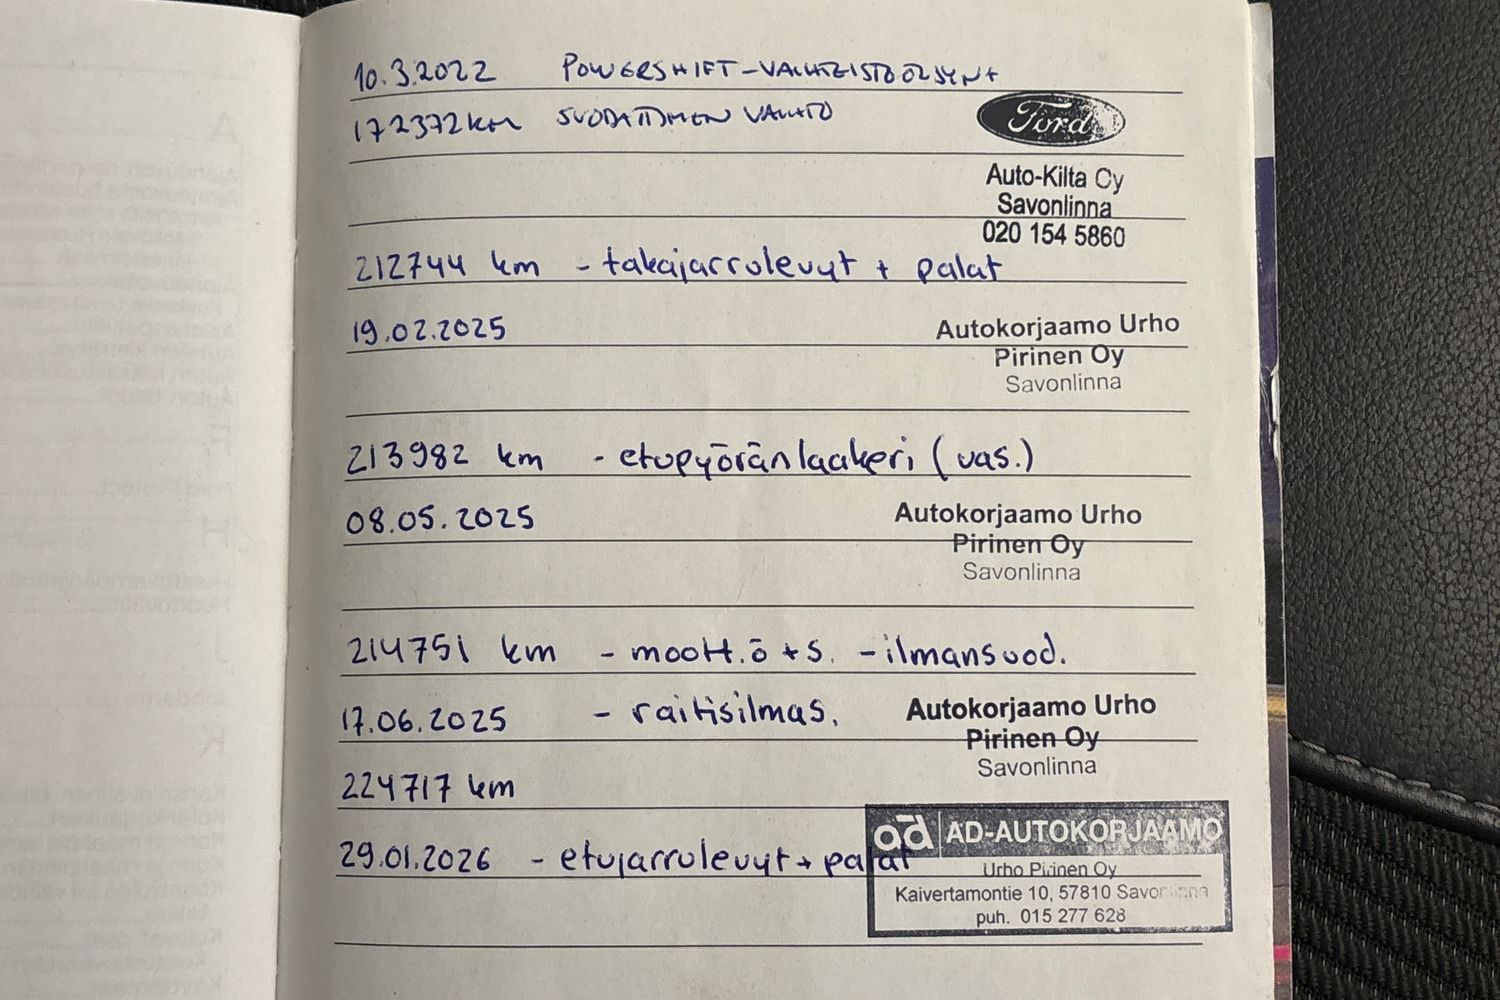 10.3.2022 POWERSHIFT-VAIHTEISTOÖLJYN+
172372km SUODATTIMEN VAIHTO
Ford
Auto-Kilta Oy
Savonlinna
020 154 5860
212744 km - takajarrulevyt + palat
19.02.2025
Autokorjaamo Urho
Pirinen Oy
Savonlinna
213982 km - etupyöränlaakeri (vas.)
08.05.2025
Autokorjaamo Urho
Pirinen Oy
Savonlinna
214751 km - moott.ö + s. - ilmansuod.
17.06.2025 - raitisilmas.
Autokorjaamo Urho
Pirinen Oy
Savonlinna
224717 km
29.01.2026 - etujarrulevyt + palat
ad AD-AUTOKORJAAMO
Urho Pirinen Oy
Kaivertamontie 10, 57810 Savonlinna
puh. 015 277 628